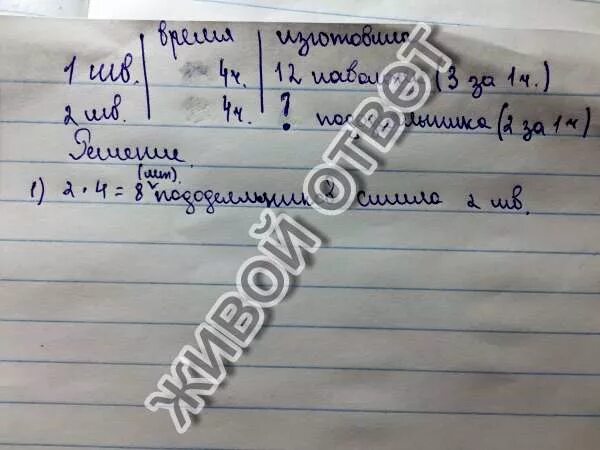 время изготовила
1 шв. 4ч. 12 наволочек (3 за 1ч.)
2 шв. 4ч. ? пододеяльника (2 за 1ч)
Решение
1) 2 · 4 = 8 (шт) пододеяльников сшила 2 шв.
ЖИВОЙ ОТВЕТ